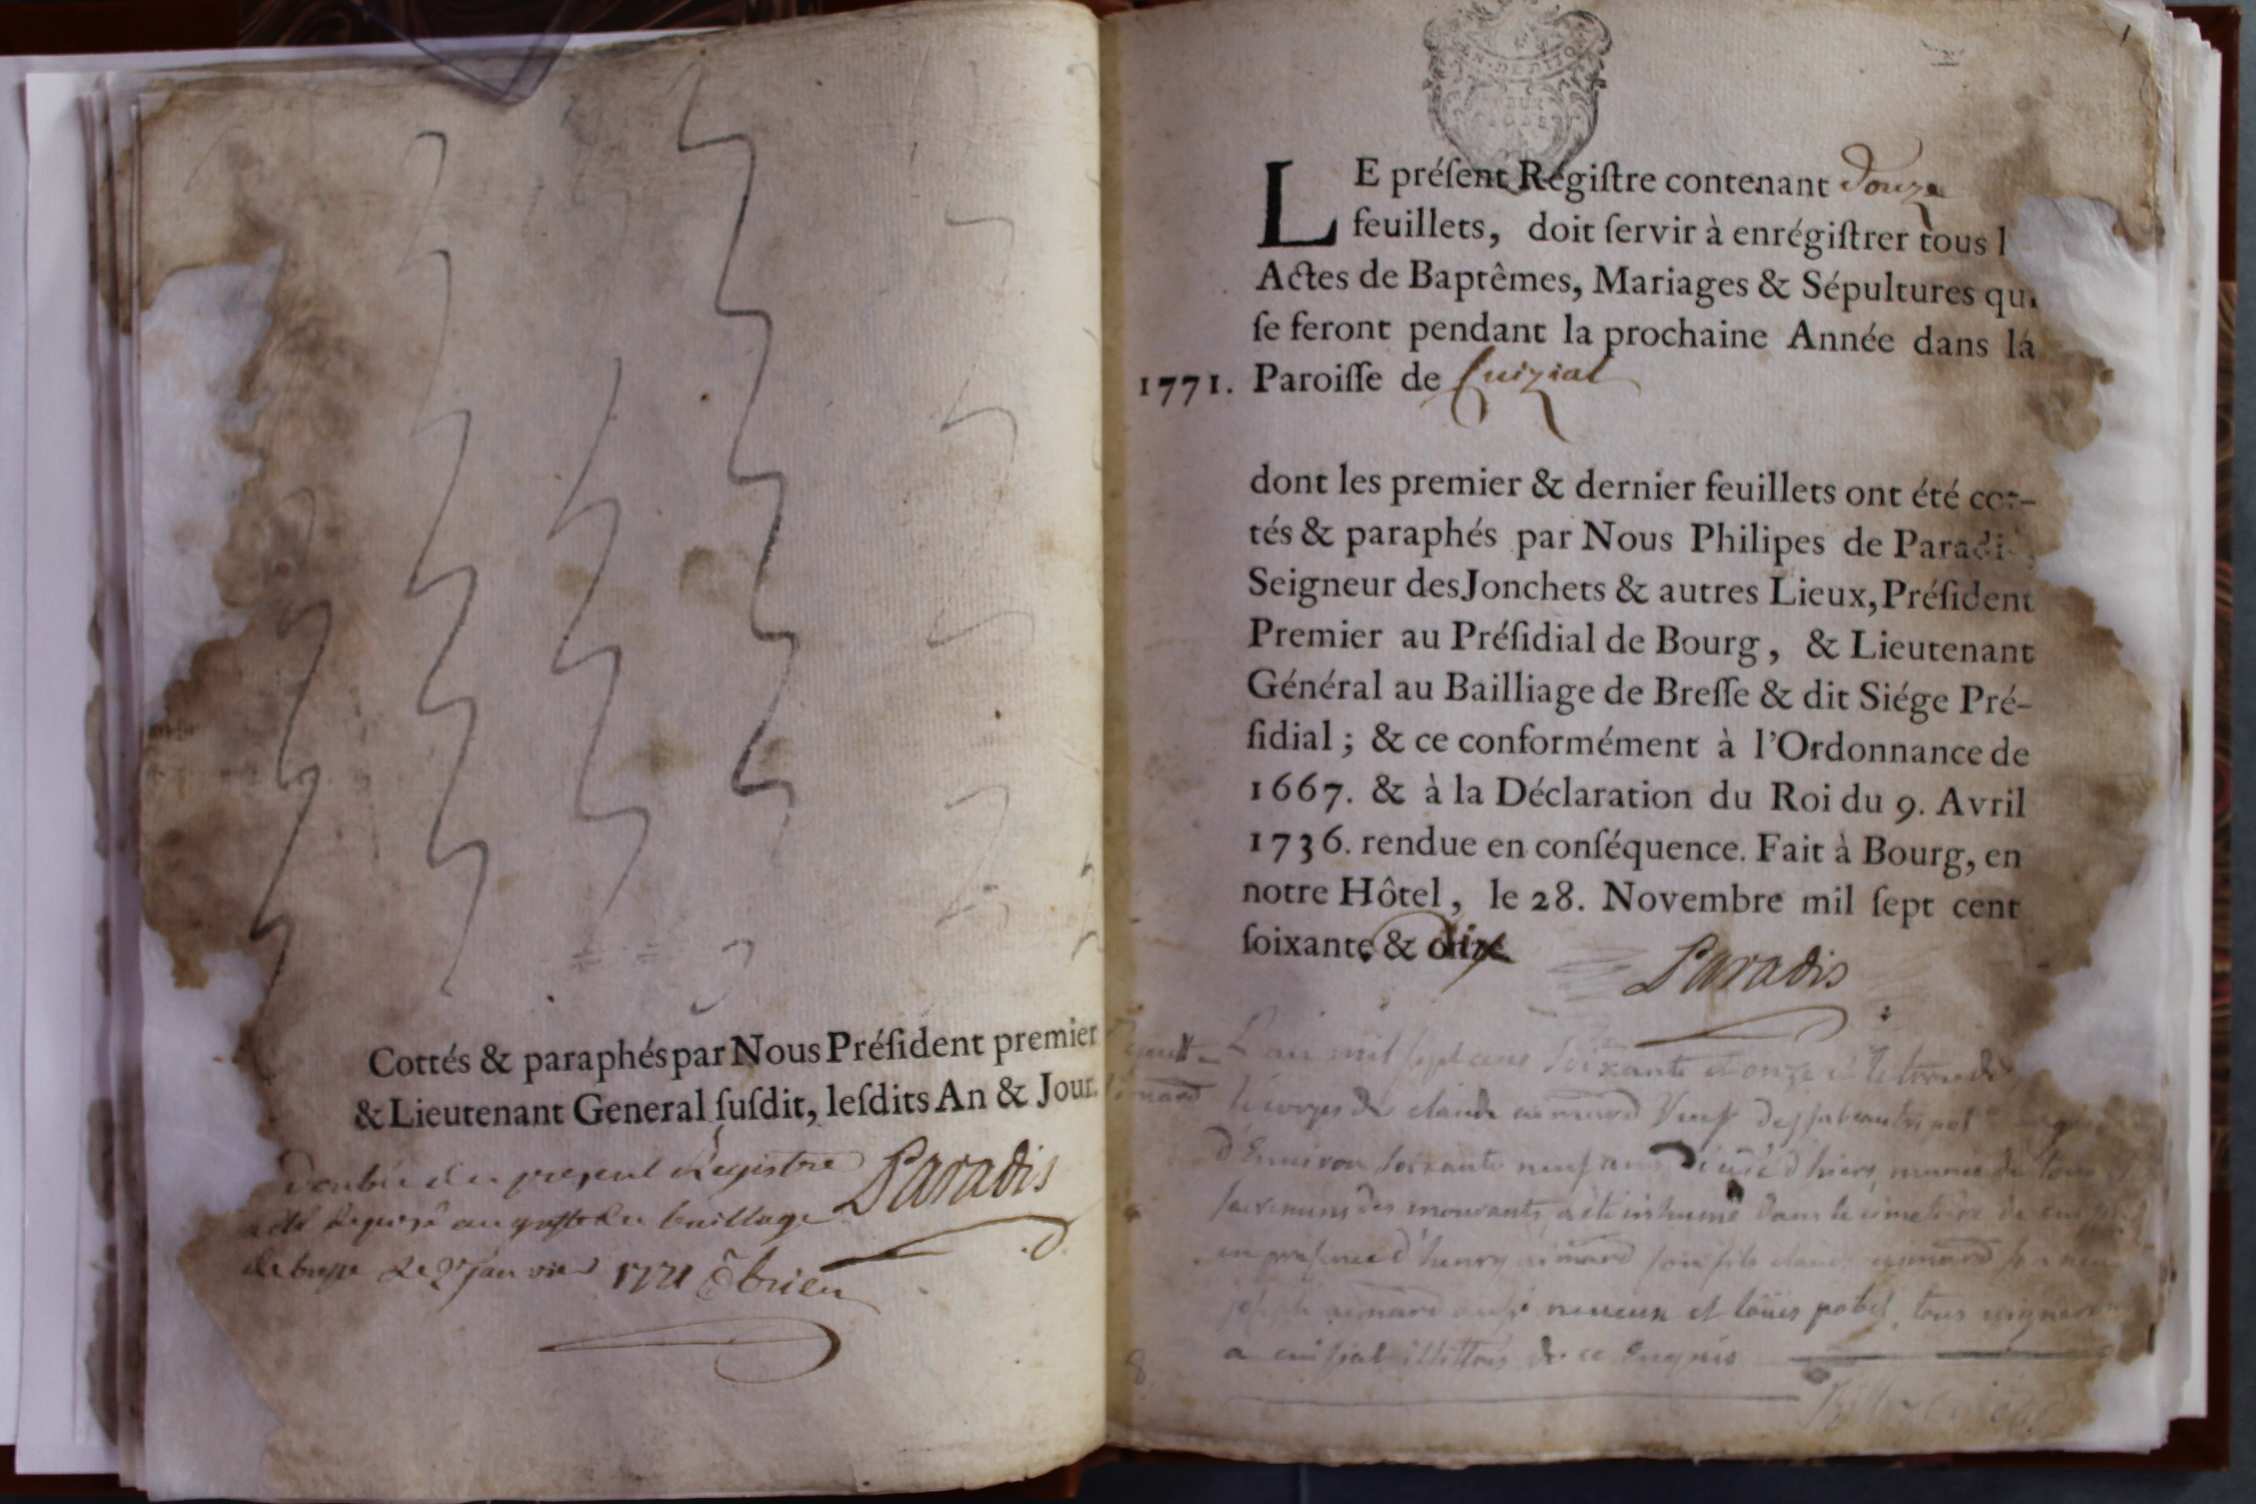 Cottés & paraphés par Nous Préſident premier
& Lieutenant General ſuſdit, leſdits An & Jour.
Double du preſent Regiſtre
Paradis
a été depoſé au greffe du bailliage
de breſſe le 2e janvier 1771 Brieu
1
LE préſent Régiſtre contenant Douze
feuillets, doit ſervir à enrégiſtrer tous l
Actes de Baptêmes, Mariages & Sépultures qui
ſe feront pendant la prochaine Année dans la
1771. Paroiſſe de Cuiziat
dont les premier & dernier feuillets ont été cot-
tés & paraphés par Nous Philipes de Paradis,
Seigneur des Jonchets & autres Lieux, Préſident
Premier au Préſidial de Bourg, & Lieutenant
Général au Bailliage de Breſſe & dit Siége Pré-
ſidial ; & ce conformément à l'Ordonnance de
1667. & à la Déclaration du Roi du 9. Avril
1736. rendue en conſéquence. Fait à Bourg, en
notre Hôtel, le 28. Novembre mil ſept cent
ſoixante & dix
Paradis
L'an mil sept cens Soixante et onze et le
le corps de claude
D'Environ soixante neuf ans Décédé d'hier, munie de tous
sacremens des mourants, a été inhumé dans le cimetière de
en présence d'henry son fils
joseph neveux et loüis tous vignerons
a cuisiat illittérés de ce Enquis